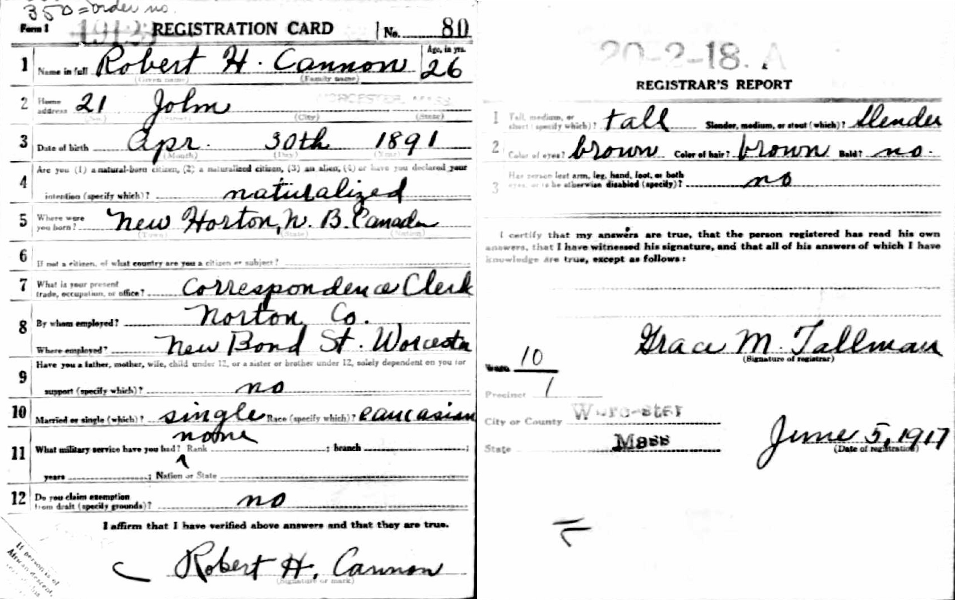 350 = order no.
Form 1 REGISTRATION CARD No. 80
1 Name in full Robert H. Cannon Age, in yrs. 26
(Given name) (Family name)
2 Home address 21 John WORCESTER, MASS.
(No.) (Street) (City) (State)
3 Date of birth Apr. 30th 1891
(Month) (Day) (Year)
Are you (1) a natural-born citizen, (2) a naturalized citizen, (3) an alien, (4) or have you declared your
4 intention (specify which)? naturalized
5 Where were you born? New Horton, N. B. Canada
(Town) (State) (Nation)
6 If not a citizen, of what country are you a citizen or subject?
7 What is your present trade, occupation, or office? Correspondence Clerk
8 By whom employed? Norton Co.
Where employed? New Bond St. Worcester
9 Have you a father, mother, wife, child under 12, or a sister or brother under 12, solely dependent on you for
support (specify which)? no
10 Married or single (which)? single Race (specify which)? caucasian
none
11 What military service have you had? Rank ; branch ;
years ; Nation or State
12 Do you claim exemption from draft (specify grounds)? no
I affirm that I have verified above answers and that they are true.
Robert H. Cannon
(Signature or mark)
If person is of
African descent,
20-2-18. A
REGISTRAR'S REPORT
1 Tall, medium, or short (specify which)? tall Slender, medium, or stout (which)? Slender
2 Color of eyes? brown Color of hair? brown Bald? no.
3 Has person lost arm, leg, hand, foot, or both eyes, or is he otherwise disabled (specify)? no
I certify that my answers are true, that the person registered has read his own
answers, that I have witnessed his signature, and that all of his answers of which I have
knowledge are true, except as follows:
Grace M. Tallman
(Signature of registrar)
Ward 10
Precinct 1
City or County Worcester
State Mass
June 5, 1917
(Date of registration)